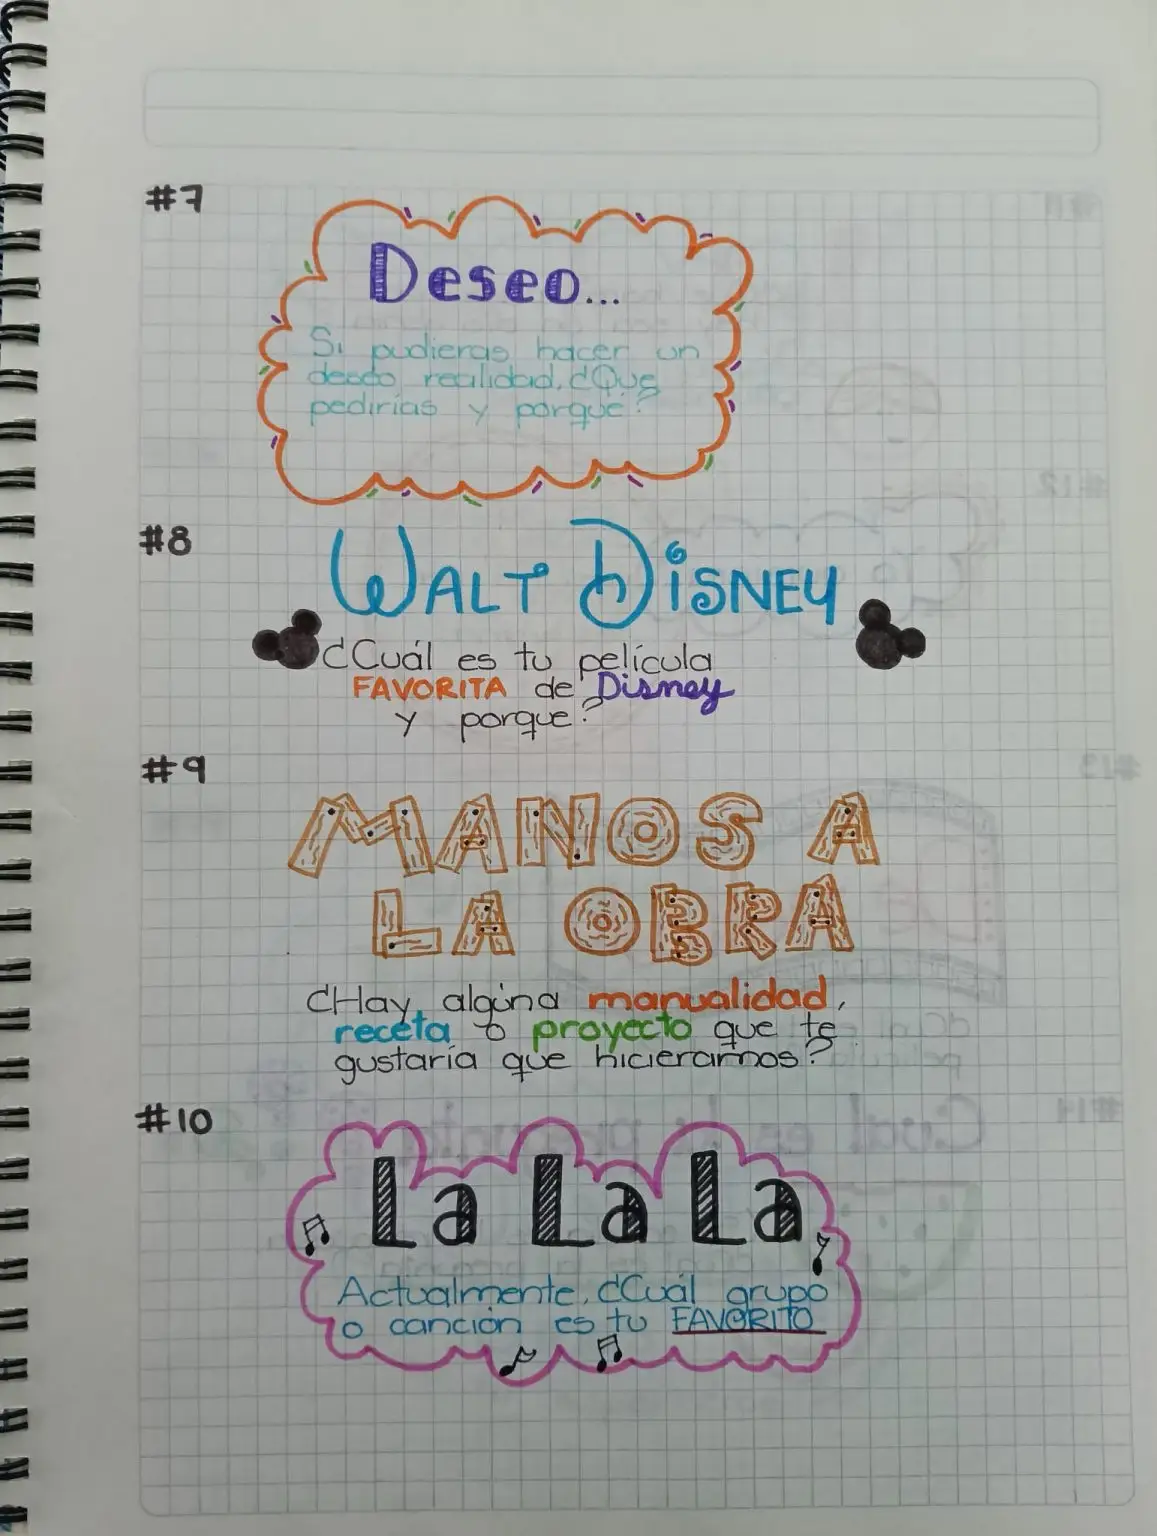 #7
Deseo...
Si pudieras hacer un
deseo realidad, ¿Que
pedirías y porqué?
#8
WALT DISNEY
¿Cuál es tu película
FAVORITA de Disney
y porque?
#9
MANOS A
LA OBRA
¿Hay alguna manualidad,
receta o proyecto que te
gustaría que hicieramos?
#10
La La La
Actualmente, ¿Cuál grupo
o canción es tu FAVORITO